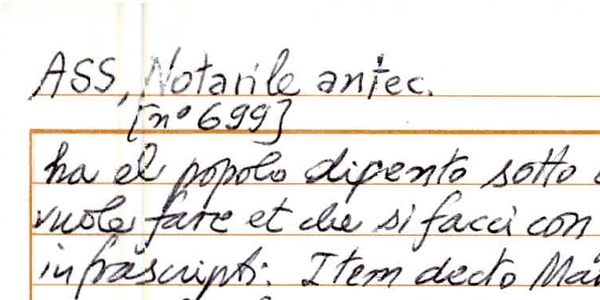 ASS, Notarile antec.
[n° 699]
ha el popolo dipento sotto
vuole fare et che si facci con
infrascripti: Item decto